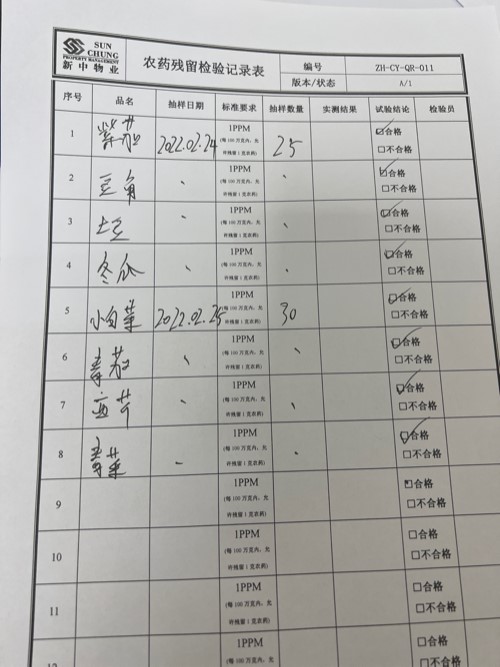 SUN CHUNG
PROPERTY MANAGEMENT
新中物业
农药残留检验记录表
编号 ZH-CY-QR-011
版本/状态 A/1
序号 品名 抽样日期 标准要求 抽样数量 实测结果 试验结论 检验员
1 紫茄 2022.02.24 1PPM (每100万克内,允许残留1克农药) 25 ☑合格 □不合格
2 豆角 、 1PPM (每100万克内,允许残留1克农药) 、 ☑合格 □不合格
3 土豆 、 1PPM (每100万克内,允许残留1克农药) 、 ☑合格 □不合格
4 冬瓜 、 1PPM (每100万克内,允许残留1克农药) 、 ☑合格 □不合格
5 小白菜 2022.02.25 1PPM (每100万克内,允许残留1克农药) 30 ☑合格 □不合格
6 、 1PPM (每100万克内,允许残留1克农药) 、 ☑合格 □不合格
7 西芹 、 1PPM (每100万克内,允许残留1克农药) 、 ☑合格 □不合格
8 1PPM (每100万克内,允许残留1克农药) 、 ☑合格 □不合格
9 1PPM (每100万克内,允许残留1克农药) □合格 □不合格
10 1PPM (每100万克内,允许残留1克农药) □合格 □不合格
11 1PPM (每100万克内,允许残留1克农药) □合格 □不合格
1PPM (每100万克内,允 □合格 □不合格